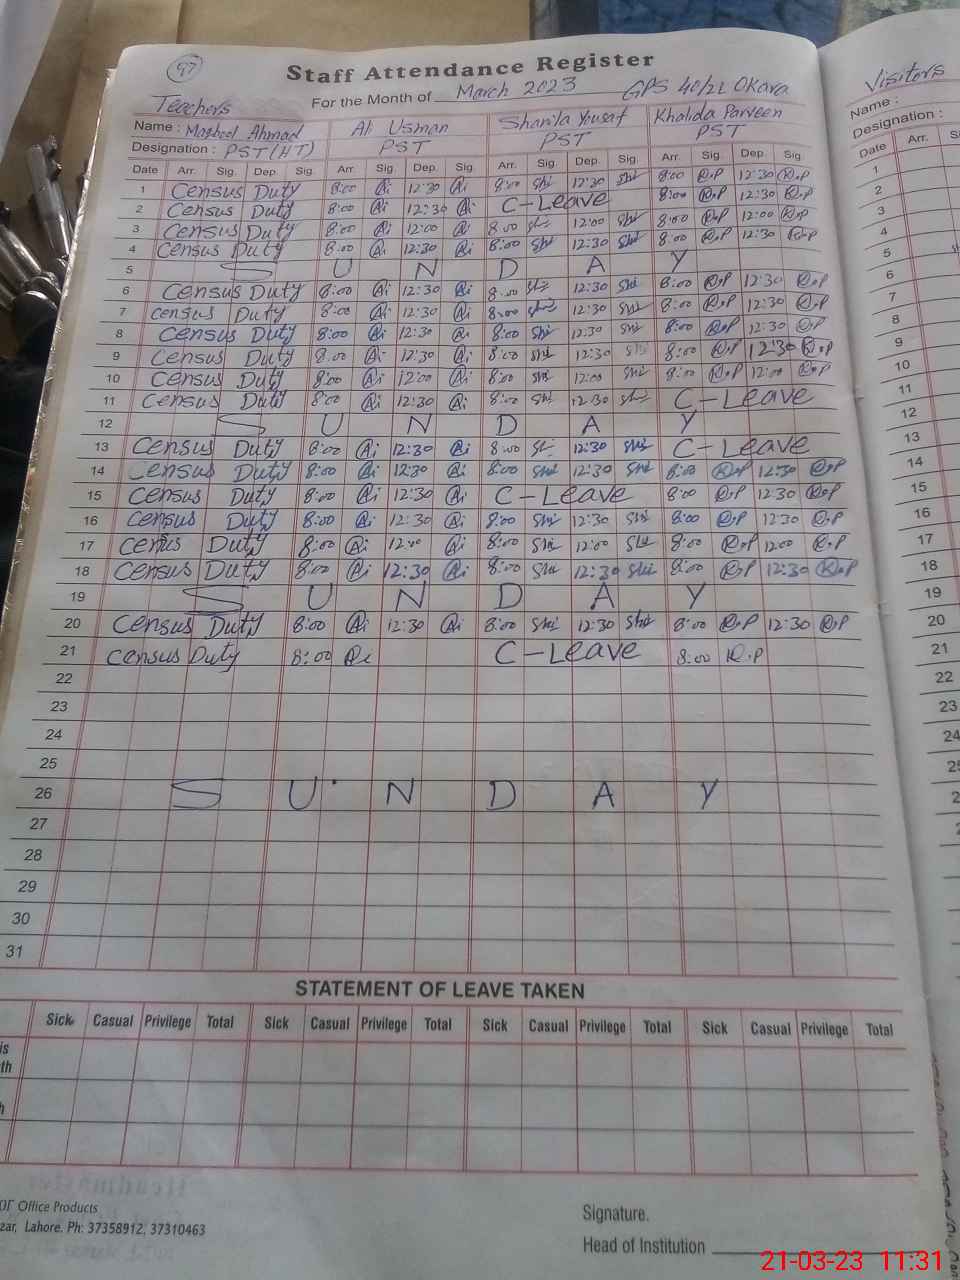 97
Staff Attendance Register
Teachers For the Month of March 2023 GPS 40/2L Okara
Name : Maqbool Ahmad Ali Usman Sharila Yousaf Khalida Parveen
Designation : PST (HT) PST PST PST
Date Arr. Sig. Dep. Sig. Arr. Sig. Dep. Sig. Arr. Sig. Dep. Sig. Arr. Sig. Dep. Sig.
1 Census Duty 8:00 Ai 12:30 Ai 8:00 Shi 12:30 Shi 8:00 K.P 12:30 K.P
2 Census Duty 8:00 Ai 12:30 Ai C-Leave 8:00 K.P 12:30 K.P
3 Census Duty 8:00 Ai 12:00 Ai 8:00 Shi 12:00 Shi 8:00 K.P 12:00 K.P
4 Census Duty 8:00 Ai 12:30 Ai 8:00 Shi 12:30 Shi 8:00 K.P 12:30 K.P
5 S U N D A Y
6 Census Duty 8:00 Ai 12:30 Ai 8:00 Shi 12:30 Shi 8:00 K.P 12:30 K.P
7 Census Duty 8:00 Ai 12:30 Ai 8:00 Shi 12:30 Shi 8:00 K.P 12:30 K.P
8 Census Duty 8:00 Ai 12:30 Ai 8:00 Shi 12:30 Shi 8:00 K.P 12:30 K.P
9 Census Duty 8:00 Ai 12:30 Ai 8:00 Shi 12:30 Shi 8:00 K.P 12:30 K.P
10 Census Duty 8:00 Ai 12:00 Ai 8:00 Shi 12:00 Shi 8:00 K.P 12:00 K.P
11 Census Duty 8:00 Ai 12:30 Ai 8:00 Shi 12:30 Shi C-Leave
12 S U N D A Y
13 Census Duty 8:00 Ai 12:30 Ai 8:00 Shi 12:30 Shi C-Leave
14 Census Duty 8:00 Ai 12:30 Ai 8:00 Shi 12:30 Shi 8:00 K.P 12:30 K.P
15 Census Duty 8:00 Ai 12:30 Ai C-Leave 8:00 K.P 12:30 K.P
16 Census Duty 8:00 Ai 12:30 Ai 8:00 Shi 12:30 Shi 8:00 K.P 12:30 K.P
17 Census Duty 8:00 Ai 12:00 Ai 8:00 Shi 12:00 Shi 8:00 K.P 12:00 K.P
18 Census Duty 8:00 Ai 12:30 Ai 8:00 Shi 12:30 Shi 8:00 K.P 12:30 K.P
19 S U N D A Y
20 Census Duty 8:00 Ai 12:30 Ai 8:00 Shi 12:30 Shi 8:00 K.P 12:30 K.P
21 Census Duty 8:00 Ai C-Leave 8:00 K.P
22
23
24
25
26 S U N D A Y
27
28
29
30
31
STATEMENT OF LEAVE TAKEN
Sick Casual Privilege Total Sick Casual Privilege Total Sick Casual Privilege Total Sick Casual Privilege Total
is
th
h
Office Products
zar, Lahore. Ph: 37358912, 37310463
Signature.
Head of Institution
Visitors
Name :
Designation :
Date Arr.
1
2
3
4
5
6
7
8
9
10
11
12
13
14
15
16
17
18
19
20
21
22
23
24
21-03-23 11:31